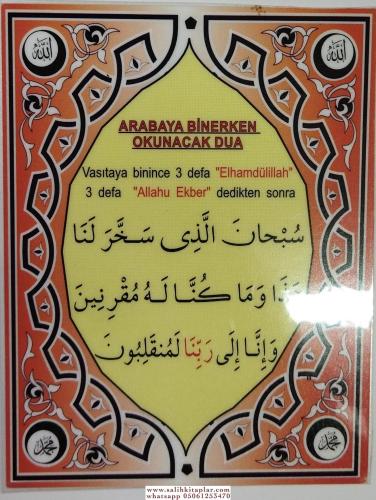 الله
الله
ARABAYA BİNERKEN
OKUNACAK DUA
Vasıtaya binince 3 defa "Elhamdülillah"
3 defa "Allahu Ekber" dedikten sonra
سُبْحَانَ الَّذِي سَخَّرَ لَنَا
هَذَا وَمَا كُنَّا لَهُ مُقْرِنِينَ
وَإِنَّا إِلَى رَبِّنَا لَمُنقَلِبُونَ
محمد
محمد
www.salihkitaplar.com
whatsapp 05061253470